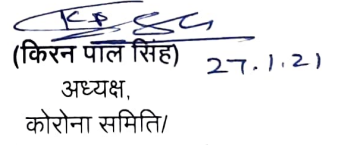 (किरन पाल सिंह) 27.1.21
अध्यक्ष,
कोरोना समिति/